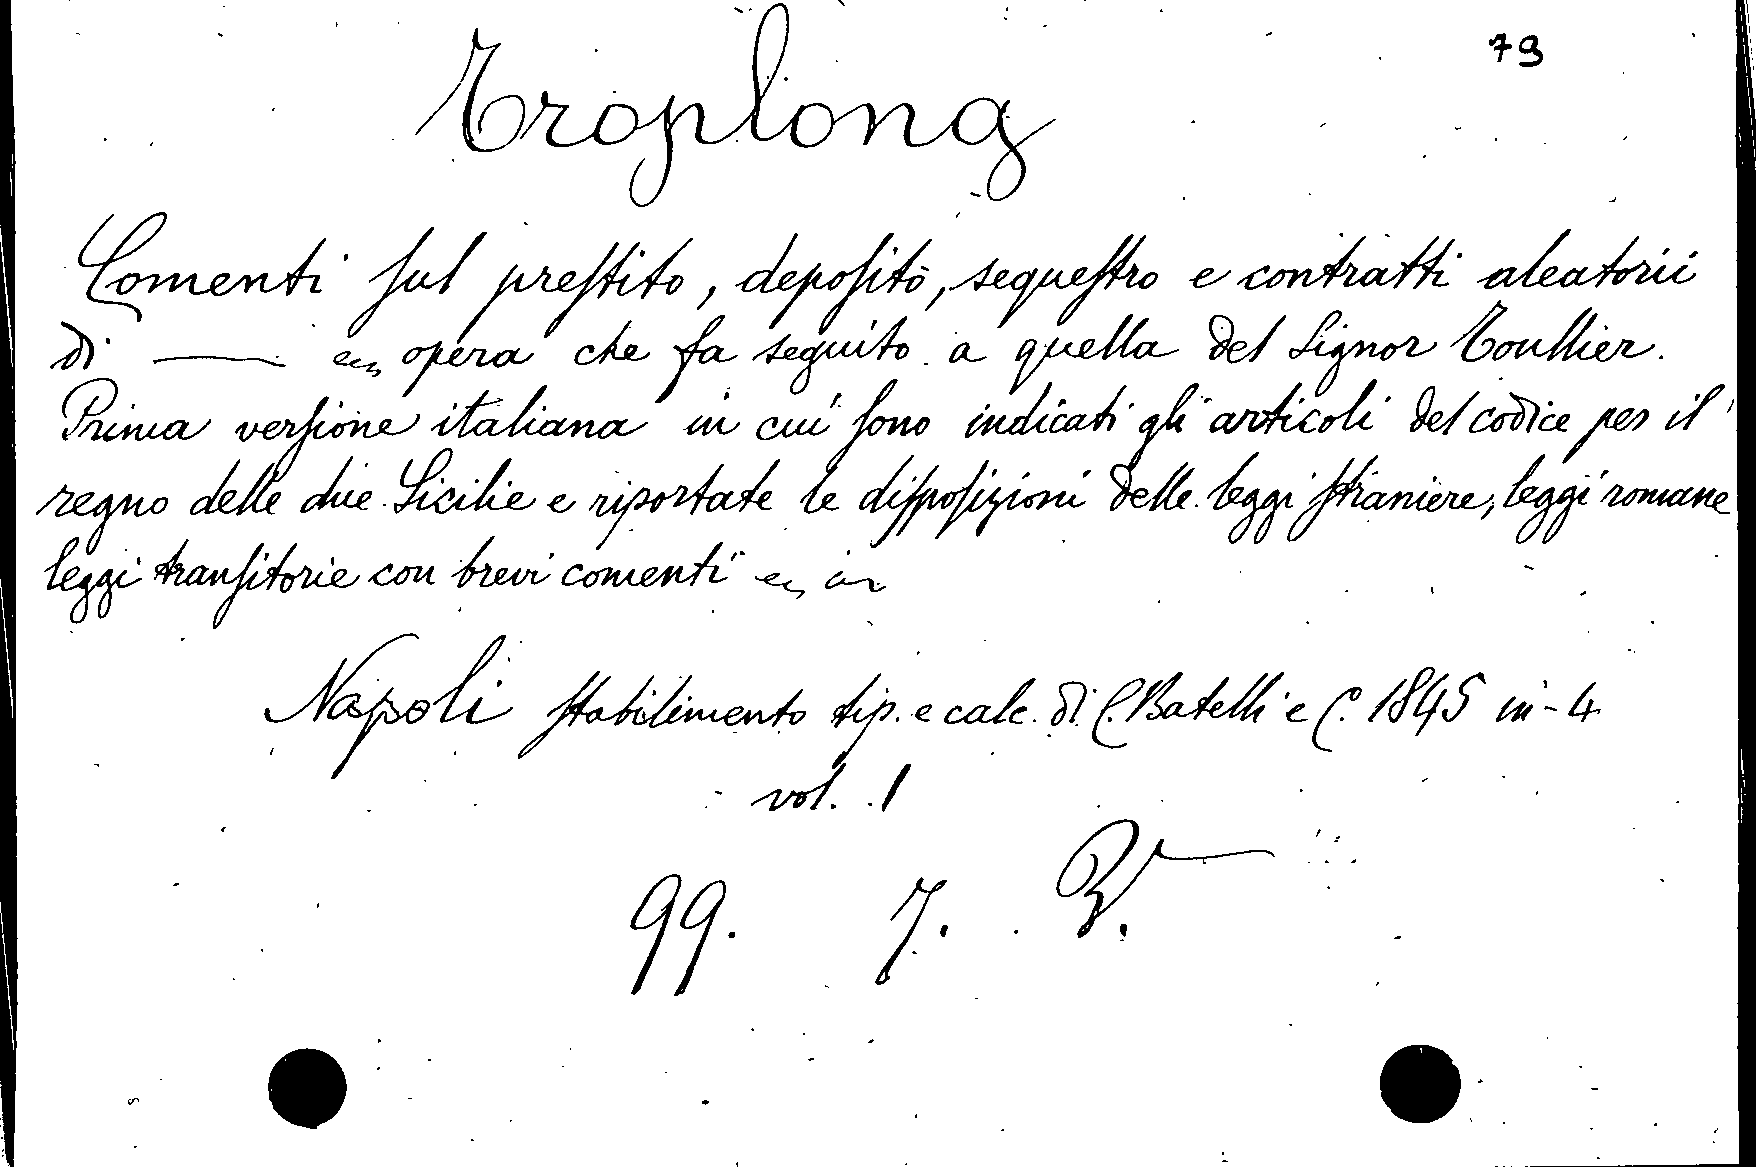 79
Troplong
Comenti sul prestito, deposito, sequestro e contratti aleatorii
di —— opera che fa seguito a quella del Signor Toullier.
Prima versione italiana in cui sono indicati gli articoli del codice per il
regno delle due Sicilie e riportate le disposizioni delle leggi straniere, leggi romane
leggi transitorie con brevi comenti
Napoli stabilimento tip. e calc. di C. Batelli e C. 1845 in-4
vol. 1
99. 7.